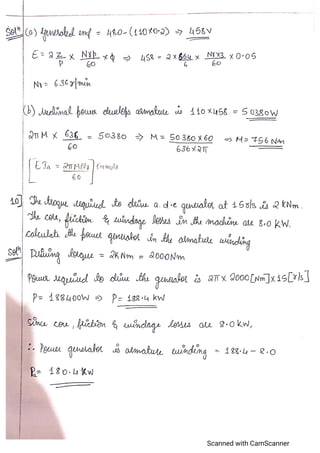 Sol^n (a) Generated emf = 480-(110×0.2) ⇒ 458V
E = 2 Z/P × NₓP/60 × ϕ ⇒ 458 = 2× 864/6 × Nₓ×3/60 × 0.05
Nₓ = 636 r/min
(b) power armature is 110×458 = 50380W
2πM × 636/60 = 50380 ⇒ M = 50380×60/636×2π ⇒ M = 756 Nm
[EIa = 2πMN/60] formula
10] The torque required to drive a d.c generator at 15r/s is 2 kNm.
The core, friction & windage losses in the machine are 8.0 KW.
Calculate the power generator in the armature winding
Sol^n Driving torque = 2KNm = 2000Nm
Power required to drive the generator is 2π × 2000[Nm]×15[r/s]
P= 188400W ⇒ P= 188.4 kW
Since core, friction & windage losses are 8.0 kW,
∴ Power generator is armature winding = 188.4 - 8.0
P= 180.4 KW
Scanned with CamScanner